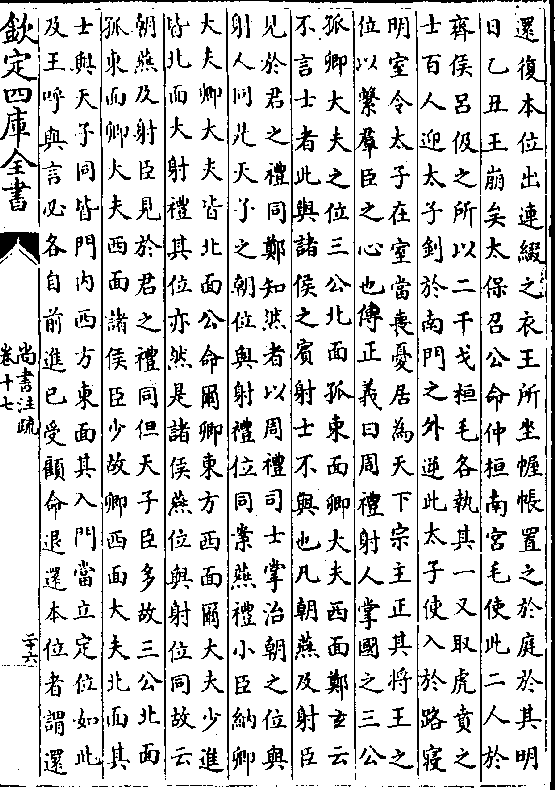 還復本位出連綴之衣王所坐幄帳置之於庭於其明
日乙丑王崩矣太保召公命仲桓南宮毛使此二人於
齊侯呂伋之所以二干戈桓毛各執其一又取虎賁之
士百人迎太子釗於南門之外逆此太子使入於路寢
明室令太子在室當喪憂居為天下宗主正其將王之
位以繫羣臣之心也傳正義曰周禮射人掌國之三公
孤卿大夫之位三公北面孤東面卿大夫西面鄭𤣥云
不言士者此與諸侯之賓射士不與也凡朝燕及射臣
見於君之禮同鄭知然者以周禮司士掌治朝之位與
射人同是天子之朝位與射禮位同案燕禮小臣納卿
大夫卿大夫皆北面公命爾卿東方西面爾大夫少進
皆北面大射禮其位亦然是諸侯燕位與射位同故云
朝燕及射臣見於君之禮同但天子臣多故三公北面
孤東面卿大夫西面諸侯臣少故卿西面大夫北面其
士與天子同皆門内西方東面其入門當立定位如此
及王呼與言必各自前進已受顧命退還本位者謂還
欽定四庫全書
尚書注疏
卷十七
二十六